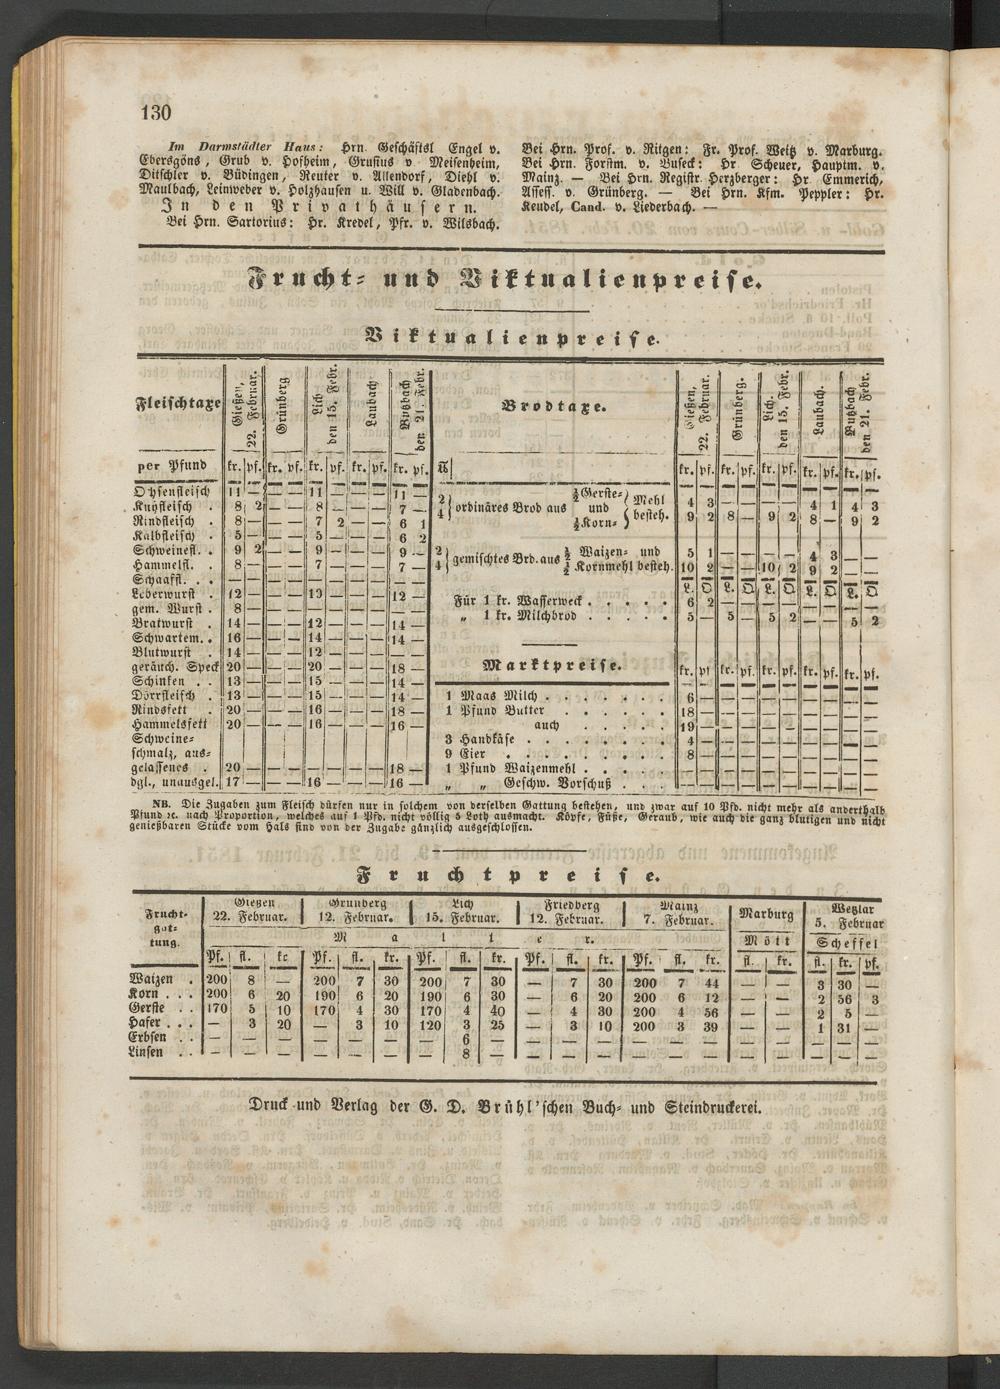 130
Im Darmstädter Haus: Hrn Geschäftsl Engel v.
Ebersgöns, Grub v. Hofheim, Grusius v Meisenheim,
Ditschler v. Büdingen, Reuter v. Allendorf, Diehl v.
Maulbach, Leinweber v. Holzhausen u. Will v. Gladenbach.
In den Privathäusern.
Bei Hrn. Sartorius: Hr. Kredel, Pfr. v. Wilsbach.
Bei Hrn. Prof. v. Ritgen: Fr. Prof. Weitz v. Marburg.
Bei Hrn. Forstm. v. Buseck: Hr Scheuer, Hauptm. v.
Mainz. — Bei Hrn. Registr Herzberger: Hr Emmerich,
Assess. v. Grünberg. — Bei Hrn. Kfm. Peppler: Hr.
Keudel, Cand. v. Liederbach. —
Frucht- und Viktualienpreise.
Viktualienpreise.
Fleischtaxe Gießen, 22. Februar. Grünberg Lich den 15. Febr. Laubach Butzbach den 21. Febr.
per Pfund kr. pf. kr. pf. kr. pf. kr. pf. kr. pf.
Ochsenfleisch 11 — — — 11 — — — 11 —
Kuhfleisch . 8 2 — — 8 — — — 7 —
Rindfleisch . 8 — — — 7 2 — — 6 1
Kalbfleisch . 5 — — — 5 — — — 6 2
Schweinefl. . 9 2 — — 9 — — — 9 —
Hammelfl. . 8 — — — 7 — — — 7 —
Schaaffl. . . — — — — — — — — — —
Leberwurst . 12 — — — — — — 12 —
gem. Wurst . 8 — — — — — — — — —
Bratwurst . 14 — — — 12 — — — 14 —
Schwartem. . 16 — — — 14 — — — 14 —
Blutwurst . 14 — — — 12 — — — — —
geräuch. Speck 20 — — — 20 — — — 18 —
Schinken . . 13 — — — 15 — — — 14 —
Dörrfleisch . 13 — — — 15 — — — 14 —
Rindsfett . 20 — — — 16 — — — 18 —
Hammelsfett 20 — — — 16 — — — 16 —
Schweine-
schmalz, aus-
gelassenes . 20 — — — — — — — 18 —
dgl., unausgel. 17 — — — 16 — — — 16 —
Brodtaxe. Gießen, 22. Februar. Grünberg. Lich. den 15. Febr. Laubach. Butzbach den 21. Febr.
℔ kr. pf. kr. pf. kr. pf. kr. pf. kr. pf.
2 4 ordinäres Brod aus ½ Gerste- und ½ Korn- Mehl besteh.
4 3 — — — — 4 1 4 3
9 2 8 — 9 2 8 — 9 2
2 4 gemischtes Brd. aus ½ Waizen- und ½ Kornmehl besteh.
5 1 — — — — 4 3 — —
10 2 — — 10 2 9 2 — —
L. Q. L. Q. L. Q. L. Q. L. Q.
Für 1 kr. Wasserweck . . . . . 6 2 — — — — — — — —
„ 1 kr. Milchbrod . . . . . 5 — 5 — 5 2 — — 5 2
Marktpreise. kr. pf kr. pf. kr. pf. kr. pf. kr. pf.
1 Maas Milch . . . . . . . 6 — — — — — — — — —
1 Pfund Butter . . . . . . 18 — — — — — — — — —
auch . . . . . 19 — — — — — — — — —
3 Handkäse . . . . . . . 4 — — — — — — — — —
9 Eier . . . . . . . . . 8 — — — — — — — — —
1 Pfund Waizenmehl . . . . . — — — — — — — — — —
„ „ Geschw. Vorschuß . . . — — — — — — — — — —
NB. Die Zugaben zum Fleisch dürfen nur in solchem von derselben Gattung bestehen, und zwar auf 10 Pfd. nicht mehr als anderthalb
Pfund ꝛc. nach Proportion, welches auf 1 Pfd. nicht völlig 5 Loth ausmacht. Köpfe, Füße, Geraub, wie auch die ganz blutigen und nicht
genießbaren Stücke vom Hals sind von der Zugabe gänzlich ausgeschlossen.
Fruchtpreise.
Frucht-
gat-
tung.
Gießen 22. Februar. Grünberg 12. Februar. Lich 15. Februar. Friedberg 12. Februar. Mainz 7. Februar. Marburg Wetzlar 5. Februar
Malter. Mött Scheffel
Pf. fl. kr Pf. fl. kr. Pf. fl. kr. Pf. fl. kr. Pf. fl. kr. fl. kr. fl. kr. pf.
Waizen . 200 8 — 200 7 30 200 7 30 — 7 30 200 7 44 — — 3 30 —
Korn . . . 200 6 20 190 6 20 190 6 30 — 6 20 200 6 12 — — 2 56 3
Gerste . . 170 5 10 170 4 30 170 4 40 — 4 30 200 4 56 — — 2 5 —
Hafer . . . — 3 20 — 3 10 120 3 25 — 3 10 200 3 39 — — 1 31 —
Erbsen . . — — — — — — — 6 — — — — — — — — — — — —
Linsen . . — — — — — — — 8 — — — — — — — — — — — —
Druck und Verlag der G. D. Brühl'schen Buch- und Steindruckerei.